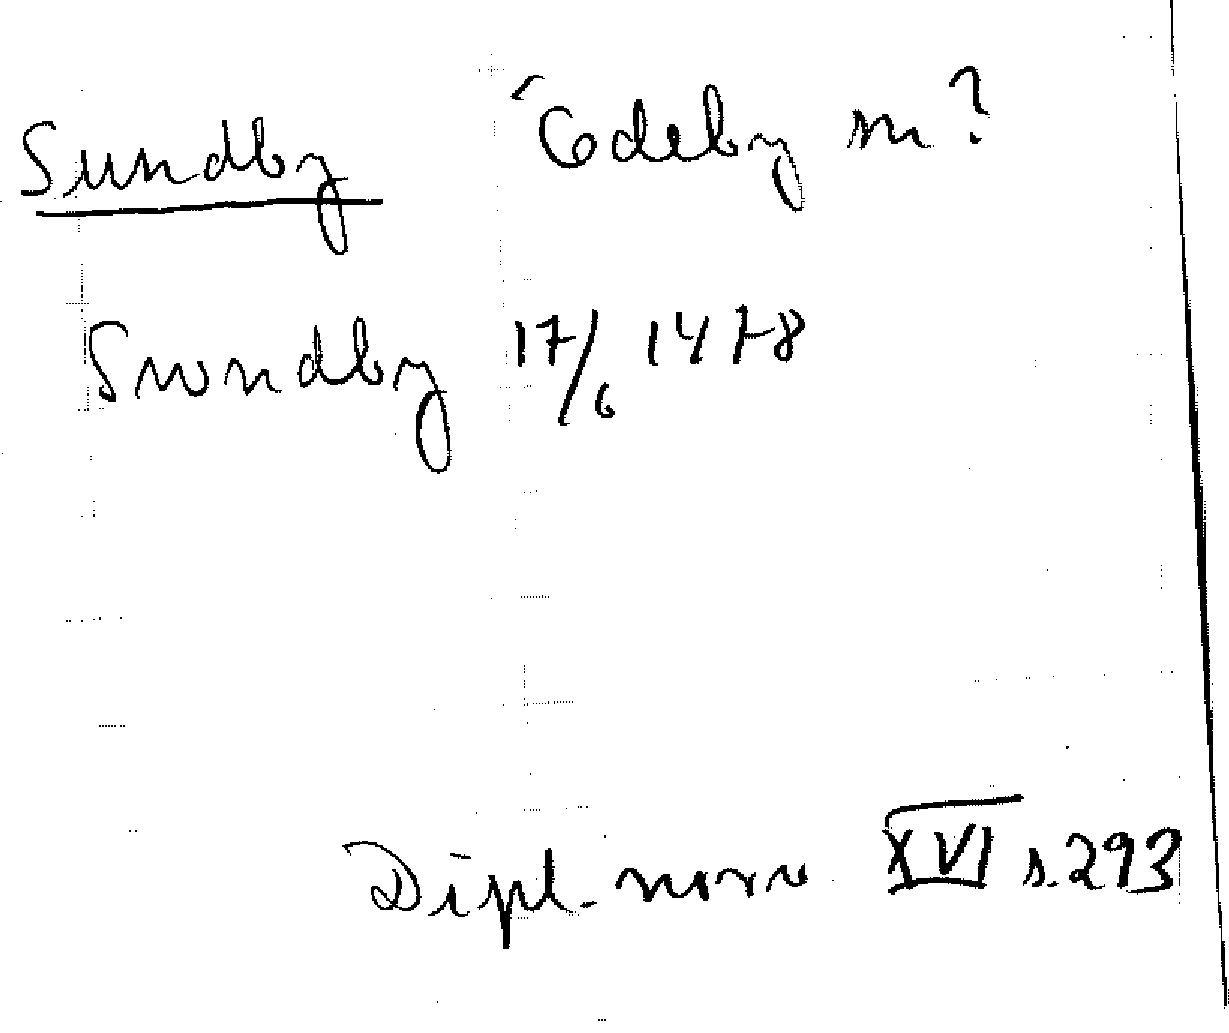 Sundby Ödeby sn?
Swndby 17/6 1478
Dipl. norv. XVI s. 293